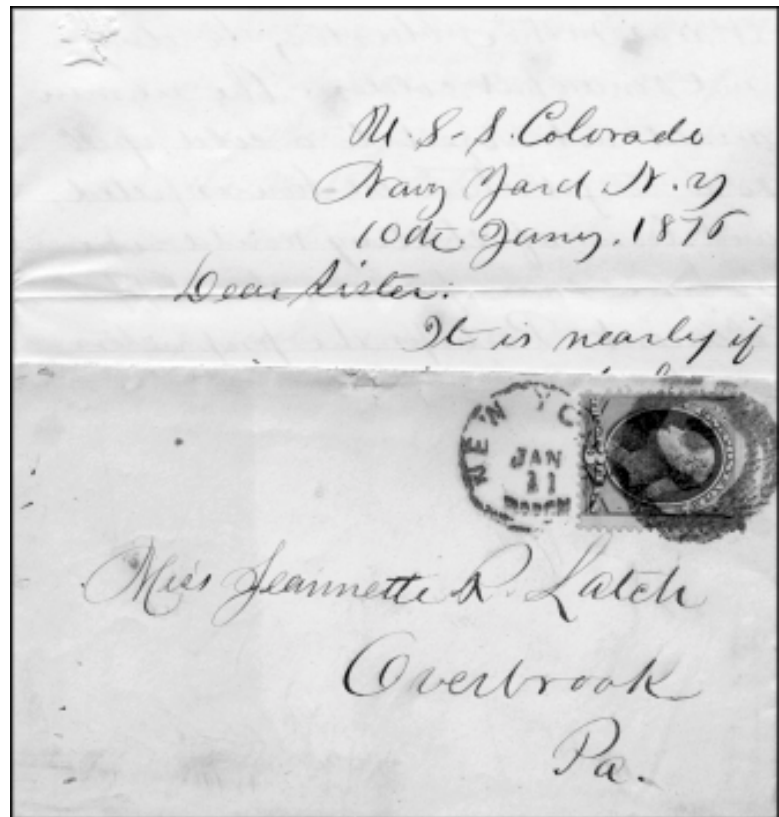 U. S. S. Colorado
Navy Yard N. Y
10th. Jany. 1876
Dear Sister:
It is nearly if
NEW YO
JAN
11
Miss Jeannette R. Latch
Overbrook
Pa.